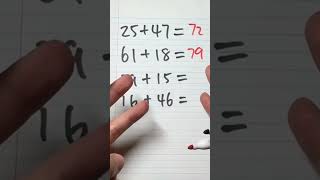 25+47=72
61+18=79
+15=
16+46=